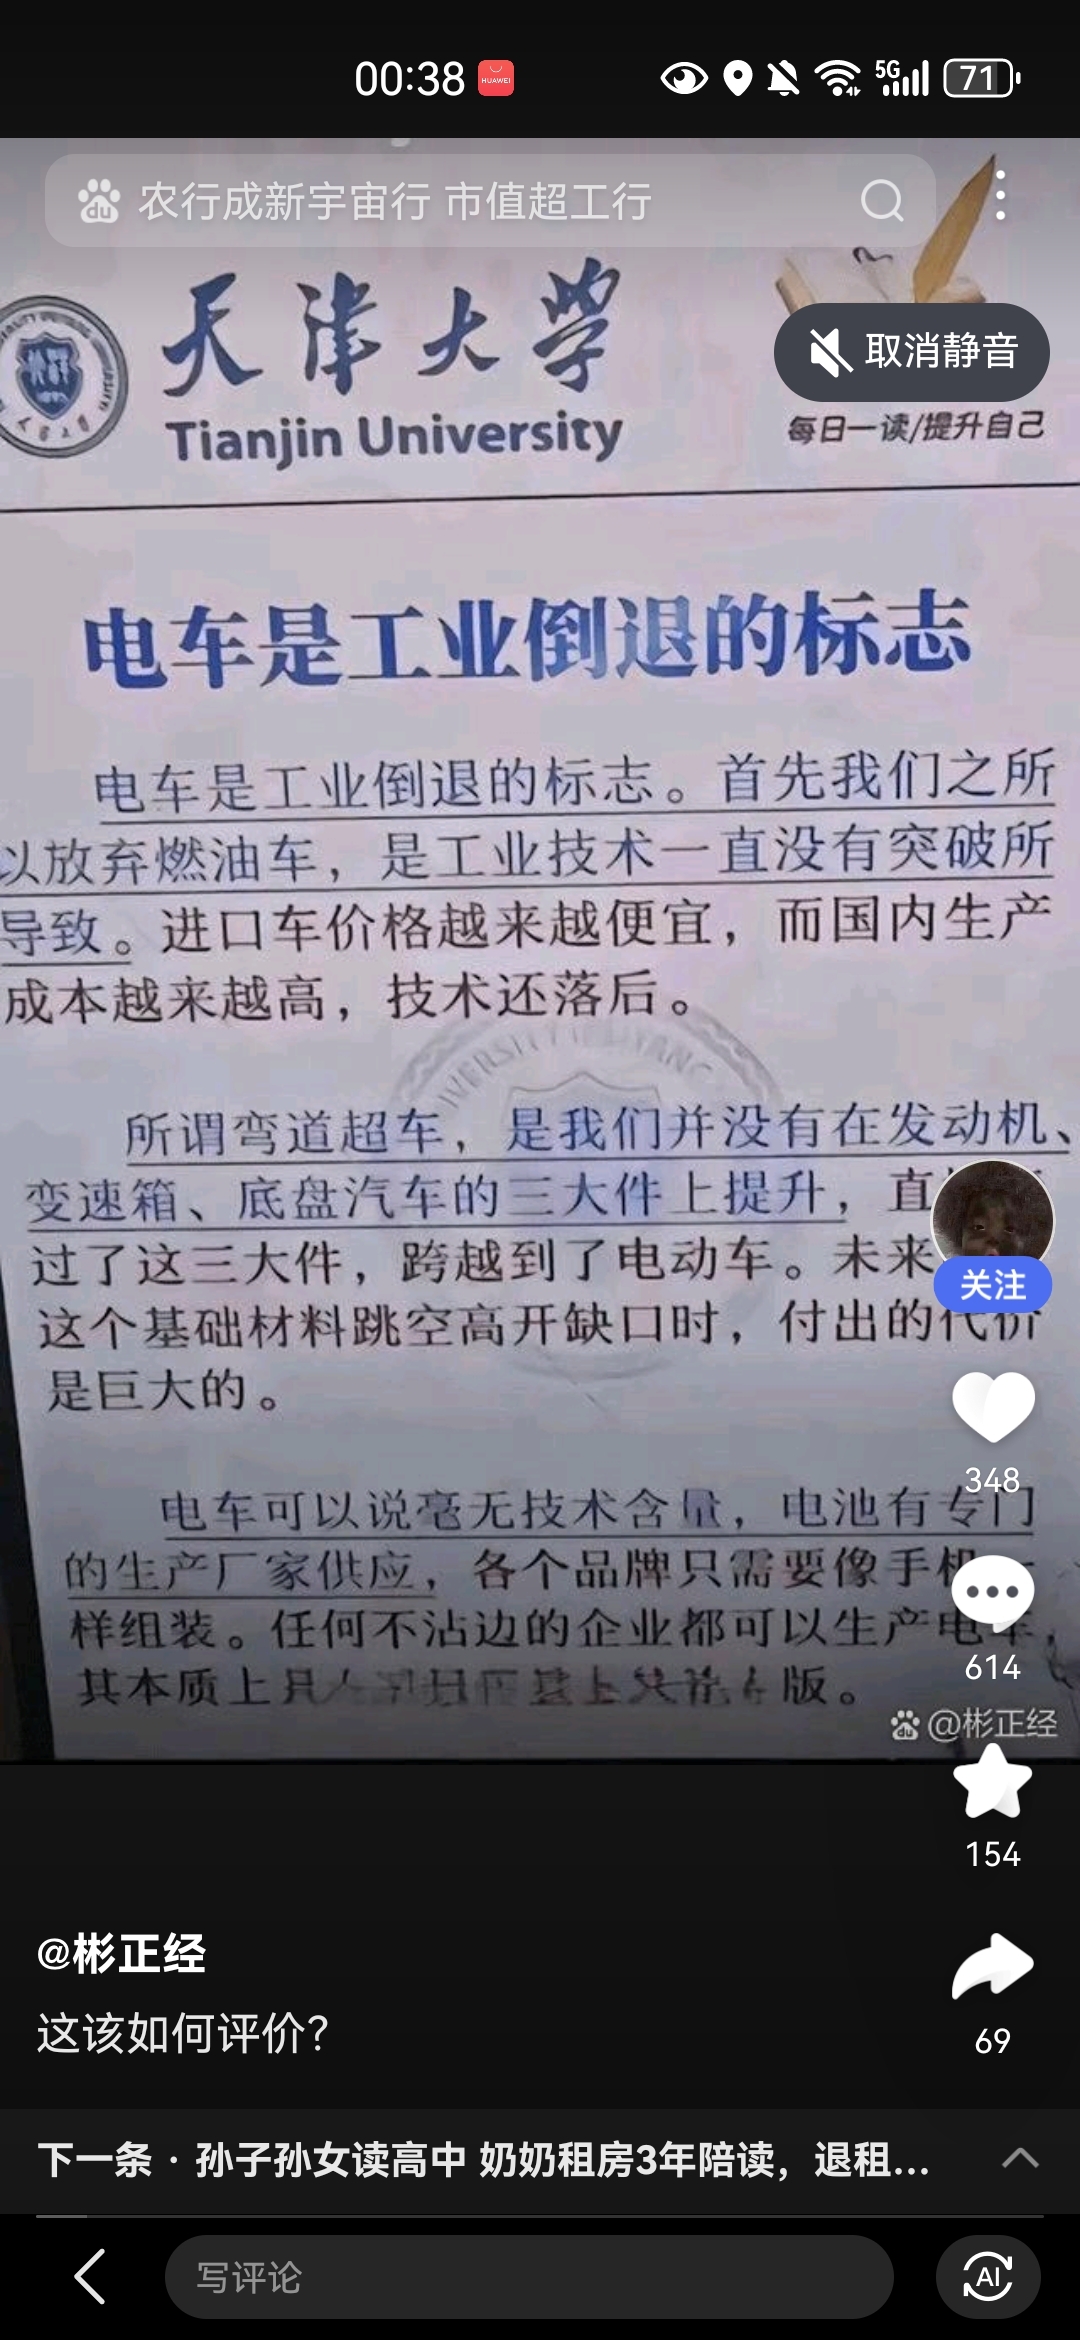 00:38
HUAWEI
5G
71
du
农行成新宇宙行 市值超工行
天津大学
Tianjin University
取消静音
每日一读/提升自己
电车是工业倒退的标志
电车是工业倒退的标志。首先我们之所
以放弃燃油车，是工业技术一直没有突破所
导致。进口车价格越来越便宜，而国内生产
成本越来越高，技术还落后。
所谓弯道超车，是我们并没有在发动机、
变速箱、底盘汽车的三大件上提升，直
过了这三大件，跨越到了电动车。未来
这个基础材料跳空高开缺口时，付出的代价
是巨大的。
电车可以说毫无技术含量，电池有专门
的生产厂家供应，各个品牌只需要像手机一
样组装。任何不沾边的企业都可以生产电车，
其本质上 版。
关注
348
614
du @彬正经
154
@彬正经
这该如何评价？
69
下一条 · 孙子孙女读高中 奶奶租房3年陪读，退租...
写评论
AI